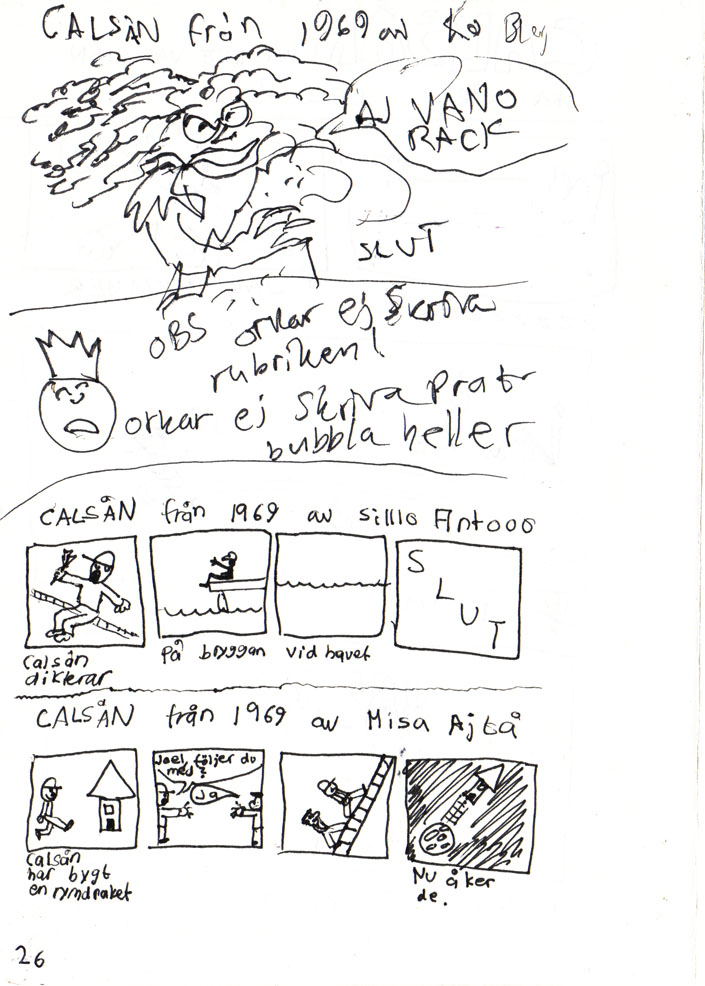 CALSÅN från 1969 av Ko Bley
AJ VANO
RACK
SLUT
OBS orkar ej skriva
rubriken!
orkar ej skriva prat
bubbla heller
CALSÅN från 1969 av Silllo Antooo
S
L
U
T
Calsån
dikterar
På bryggan
vid havet
CALSÅN från 1969 av Misa Ajtå
Joel, följer du
med?
Ja
Calsån
har bygt
en rymdraket
Nu åker
de.
26